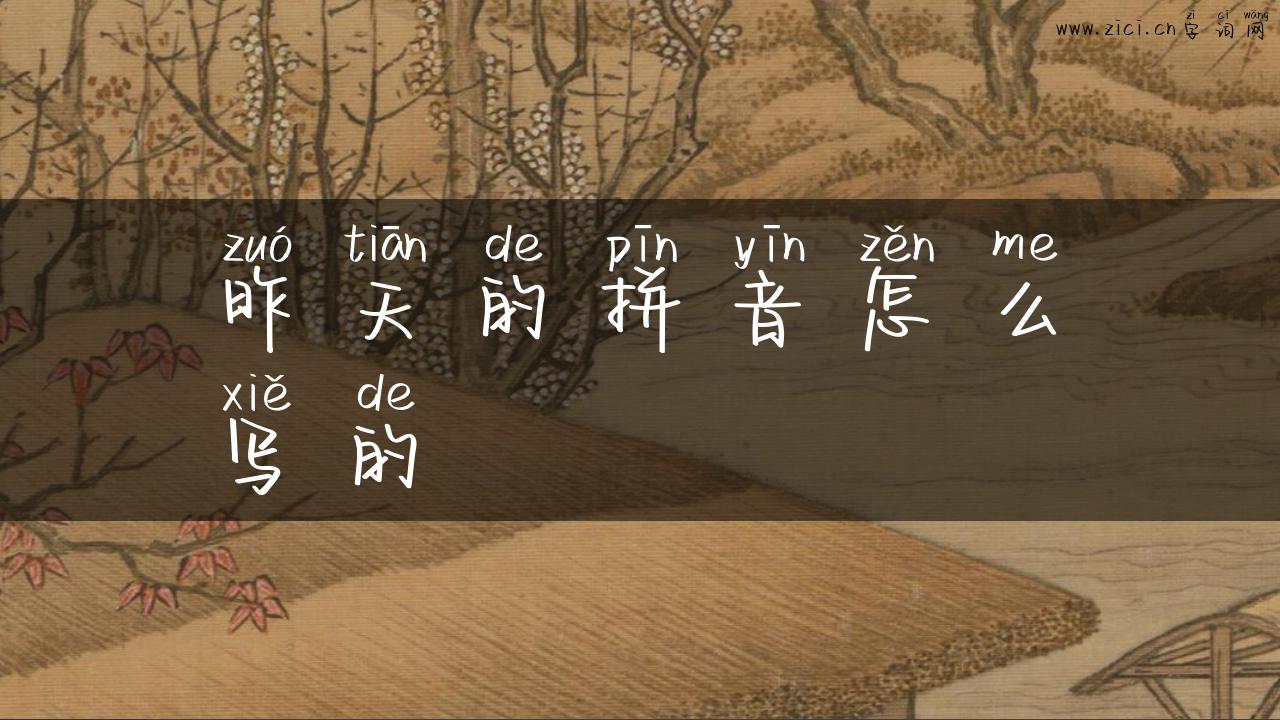 zì cí wǎng
www.zici.cn 字词网
zuó tiān de pīn yīn zěn me
昨天的拼音怎么
xiě de
写的